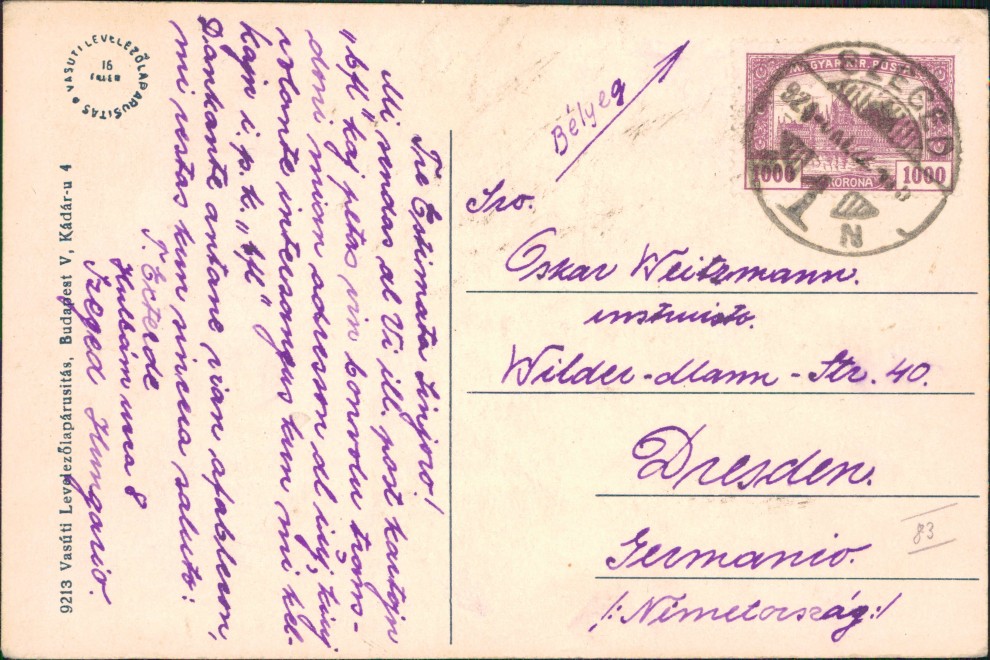 VASUTI LEVELEZŐLAPÁRUSITÁS
16
9213 Vasúti Levelezőlapárusitás, Budapest V, Kádár-u 4
Tre Estimata Sinjoro!
Mi sendas al Vi ill. poŝt kartojn
"bfl" kaj petas vin bonvolu trans-
doni mion adreson al iuj, kiuj
volonte interŝanĝus kun mi kel-
kajn i. p. k. "bfl"
Dankante antaŭe vian afablecon,
mi restas kun sincera saluto:
Hulbám utca 8
Szeged Hungario.
Bélyeg
MAGYAR KIR. POSTA
1000 KORONA 1000
CEGLÉD
Sro.
Oskar Weitzmann.
instruisto.
Wilder-Mann-Str. 40.
Dresden.
Germanio.
/:Németország:/
83